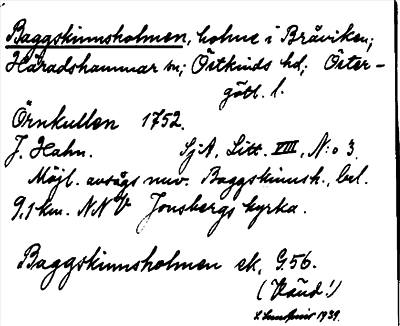 Baggskinnsholmen, holme i Bråviken;
Häradshammar sn; Östkinds hd; Öster-
götl. l.
Örnkullen 1752.
J. Hahn. SjA, Litt. VIII, N:o 3.
Möjl. avsågs nuv. Baggskinnsh., bel.
9,1 km. NNV Jonsbergs kyrka.
Baggskinnsholmen ek, G.56.
(Känd!)
1939.